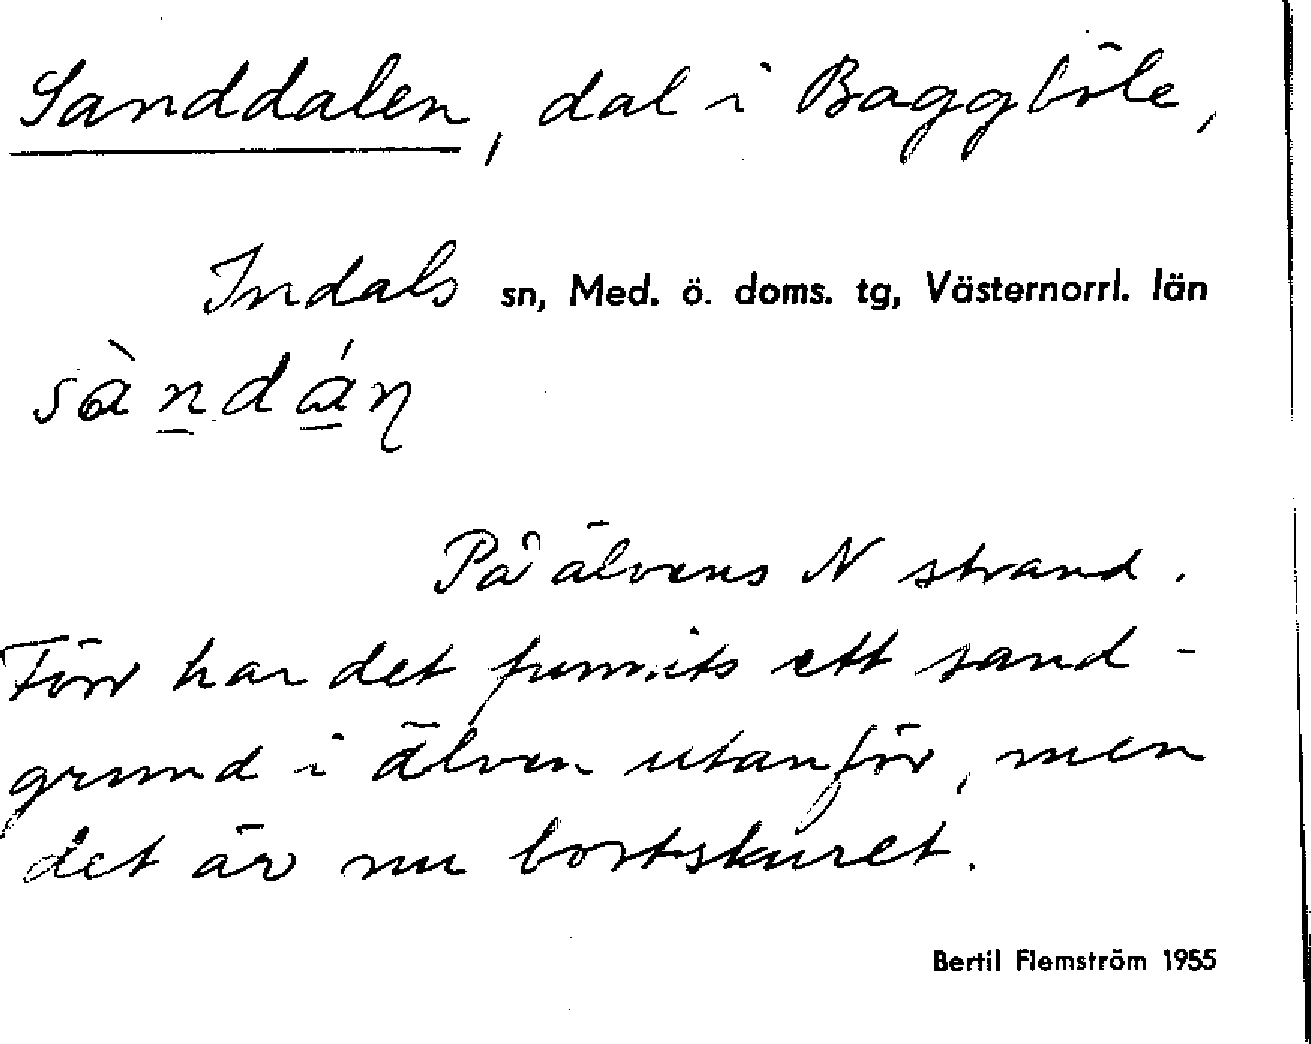 Sanddalen, dal i Baggböle,
Indals sn, Med. ö. doms. tg, Västernorrl. län
sàndáṇ
På älvens N strand.
Förr har det funnits ett sand-
grund i älven utanför, men
det är nu bortskuret.
Bertil Flemström 1955